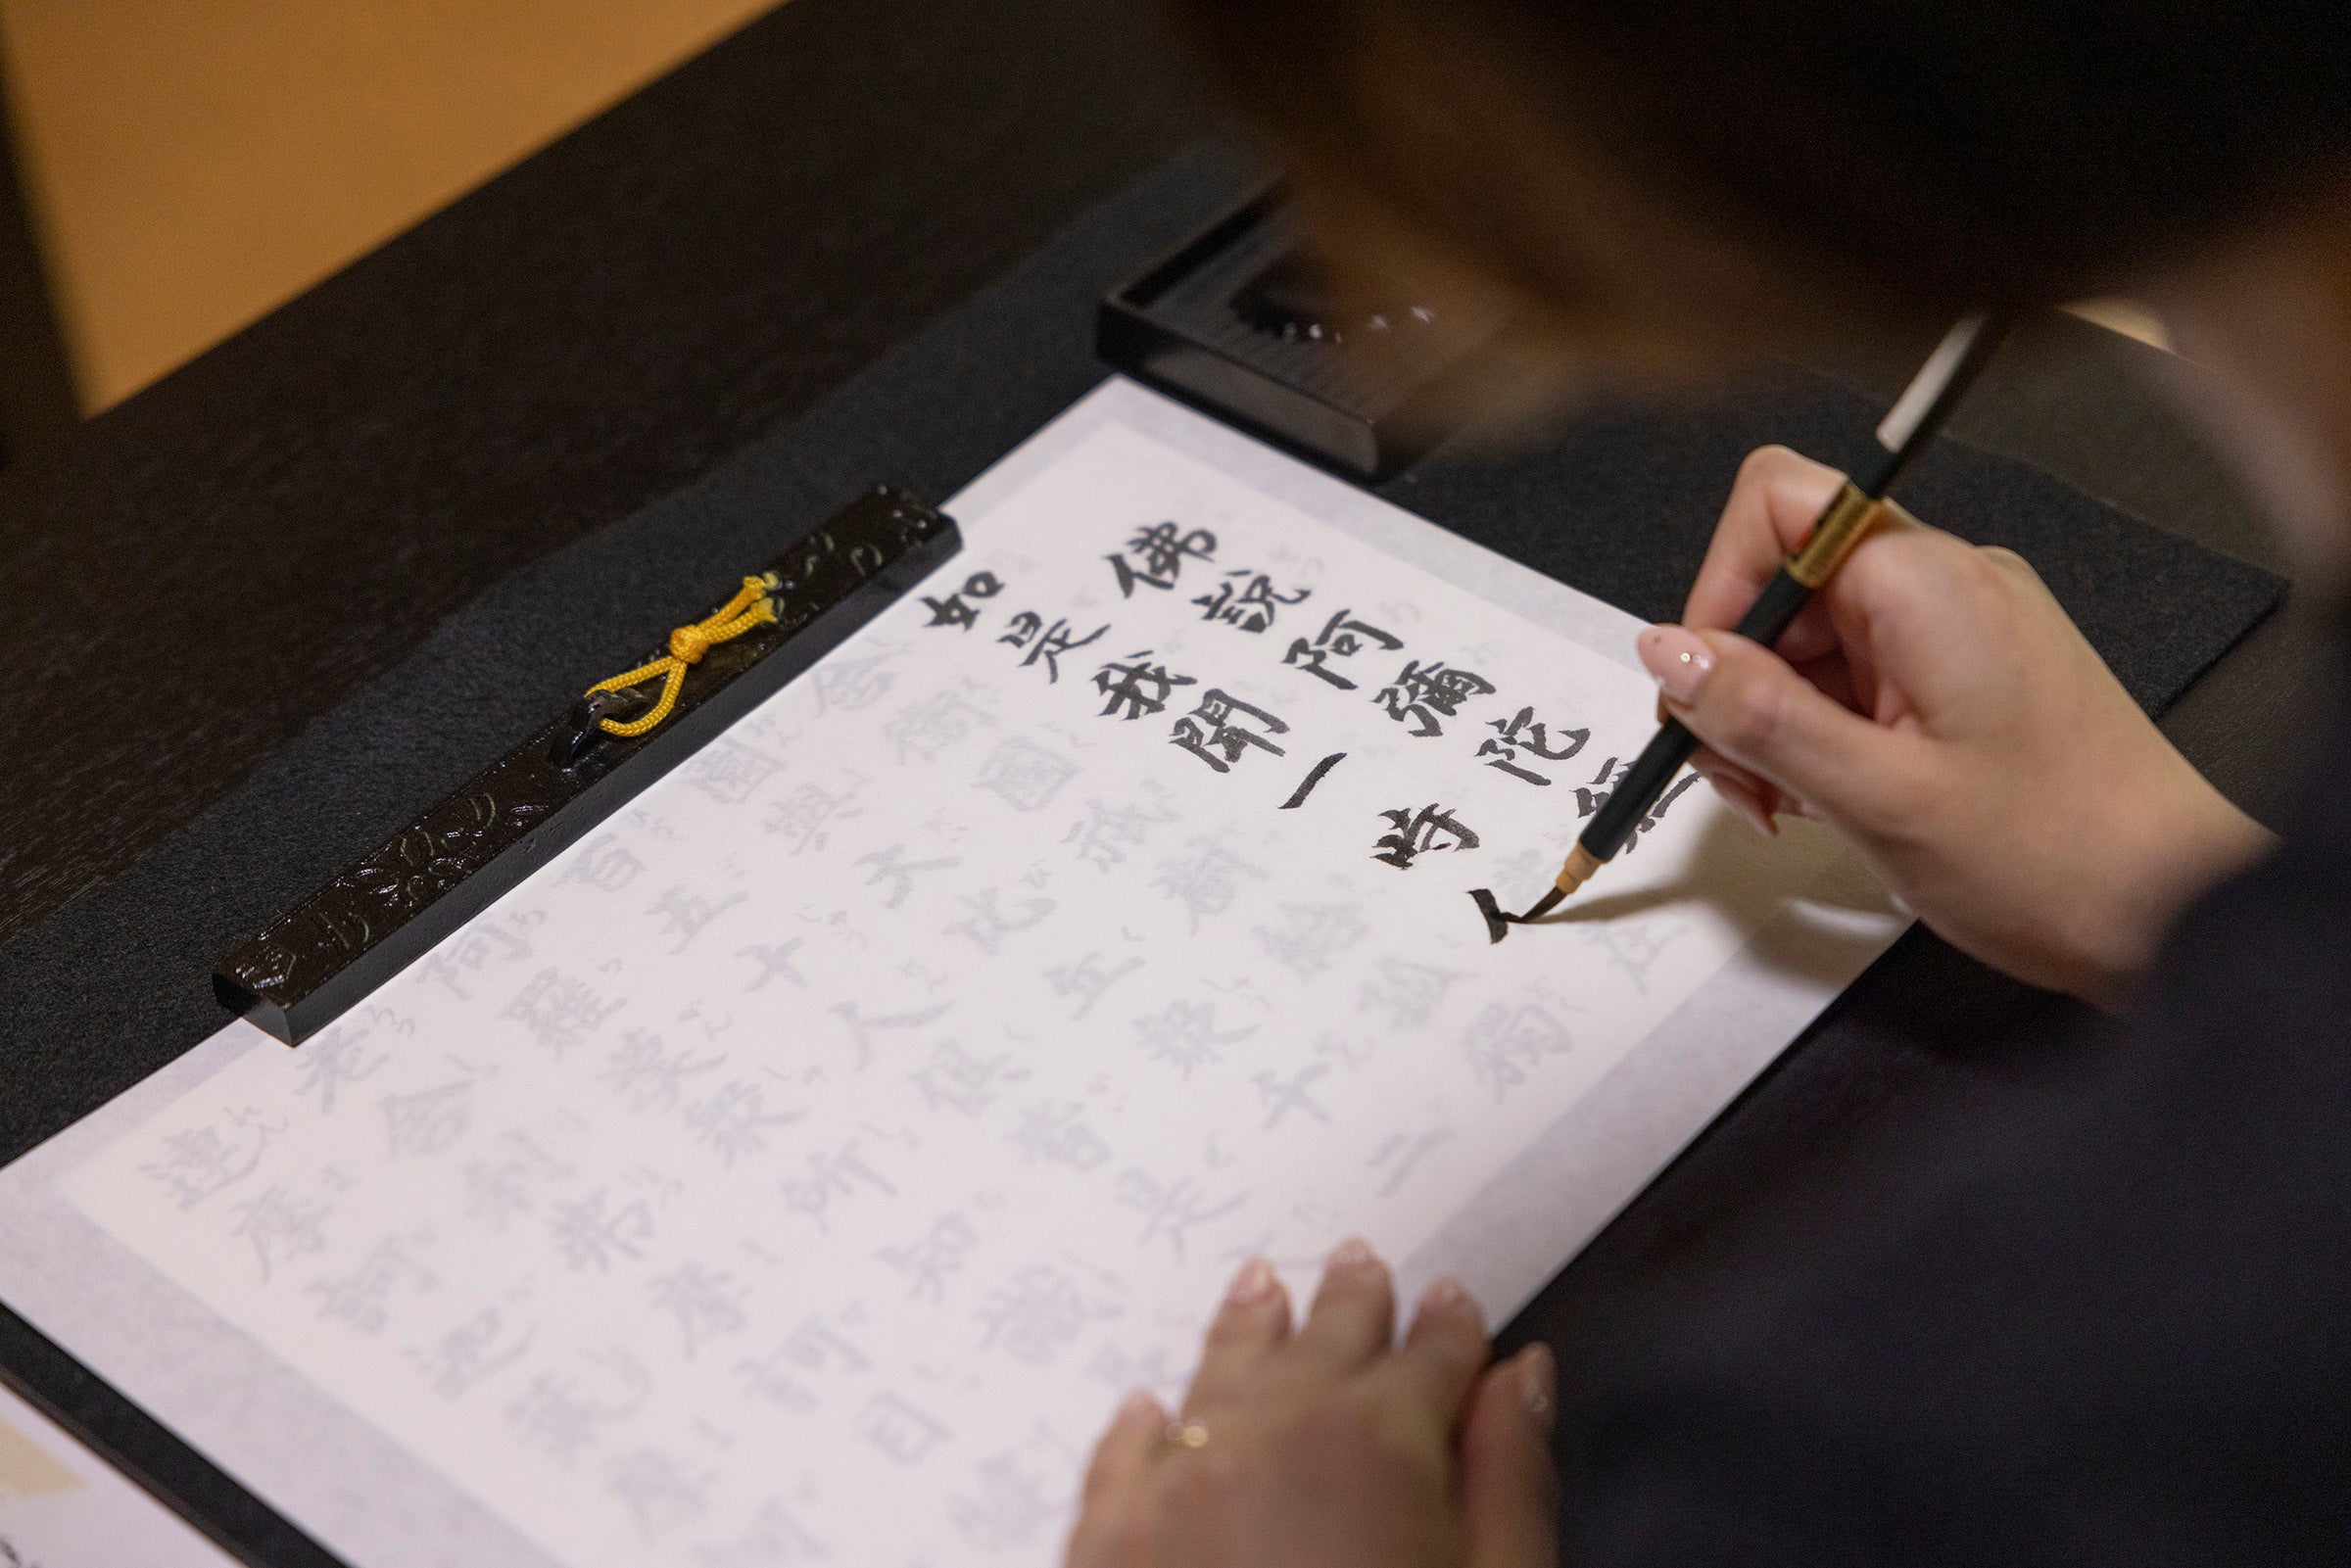 佛說阿彌陀經
如是我聞一時在
舍衛國祇樹給孤獨
園與大比丘衆千二
百五十人俱皆是大
阿羅漢衆所知識
老舍利弗摩訶目
連摩訶迦葉摩訶